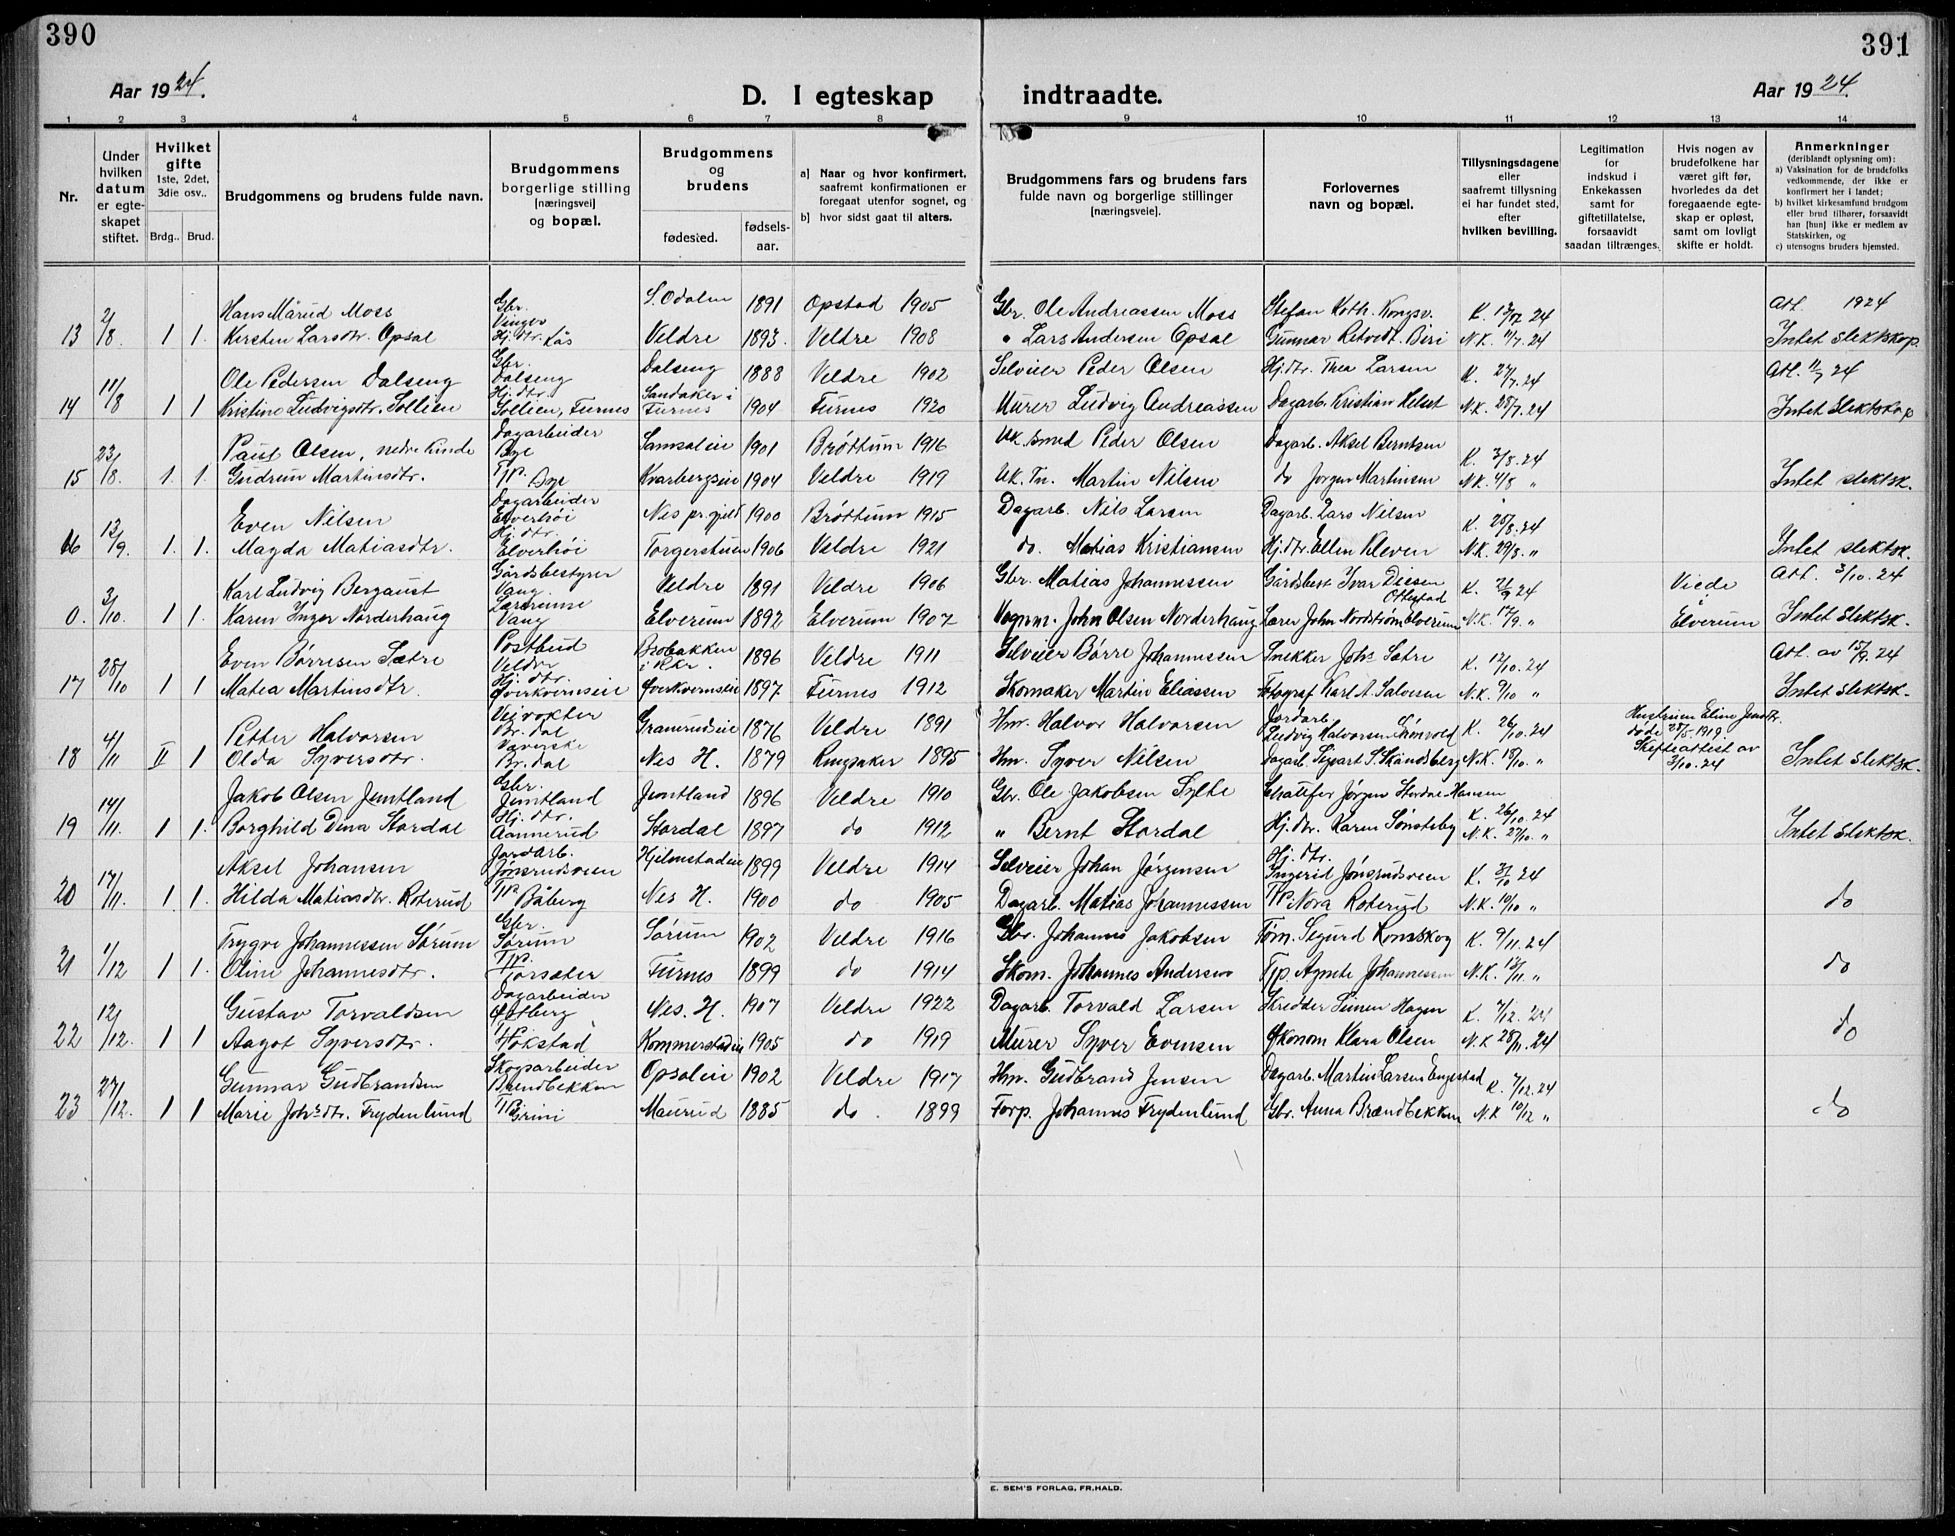 390
391
Aar 1924.
D. I egteskap indtraadte.
Aar 1924.
1 2 3 4 5 6 7 8 9 10 11 12 13 14
Nr.
Under hvilken datum er egteskapet stiftet.
Hvilket gifte 1ste, 2det, 3die osv..
Brdg.. Brud.
Brudgommens og brudens fulde navn.
Brudgommens borgerlige stilling [næringsvei] og bopæl.
Brudgommens og brudens
fødested.
fødselsaar.
a] Naar og hvor konfirmert, saafremt konfirmationen er foregaat utenfor sognet, og
b] hvor sidst gaat til alters.
Brudgommens fars og brudens fars fulde navn og borgerlige stillinger [næringsveie].
Forlovernes navn og bopæl.
Tillysningsdagene eller saafremt tillysning ei har fundet sted, efter hvilken bevilling.
Legitimation for indskud i Enkekassen samt for giftetillatelse, forsaavidt saadan tiltrænges.
Hvis nogen av brudefolkene har været gift før, hvorledes da det foregaaende egteskap er opløst, samt om lovligt skifte er holdt.
Anmerkninger (deriblandt oplysning om):
a) Vaksination for de brudefolks vedkommende, der ikke er konfirmert her i landet;
b) hvilket kirkesamfund brudgom eller brud tilhører, forsaavidt han [hun] ikke er medlem av Statskirken, og
c) utensogns bruders hjemsted.
Hans Mårud Moss Gbr. Vinger S. Odalen 1891 Opstad 1905 Gbr. Ole Andreassen Moss Stefan Koth. Kongsv. K. 13/7 24 Att. 1924
13 2/8. 1 1. Kersten Larsdtr. Opsal Hj.dtr. Lås Veldre 1893. Veldre 1908 " Lars Andersen Opsal Gunnar Biri N.K. 11/7. 24 Intet slektskap.
Ole Pedersen Dalseng Gbr. Dalseng Dalseng 1888 Veldre 1902 Selveier Peder Olsen Hj.dtr. Thea Larsen K. 27/7. 24 Att. 11/7 24
14 11/8 1 1 Kristine Ludvigsdtr. Sollien Hj.dtr. Sollien, Furnes Sandaker i Furnes 1904 Furnes 1920 Murer Ludvig Andreassen Dagarb. Kristian Helset N.K. 28/7. 24 Intet slektskap
Paul Olsen, nedre Kinde Dagarbeider Bye 1901 Brøttum 1916 Uk. smed Peder Olsen Dagarb. Aksel Berntsen K. 3/8. 24
15 23/8. 1. 1. Gudrun Martinsdtr. Tjp. Bye Kvarbergseie 1904 Veldre 1919 Uk. Tn. Martin Nilsen do Jørgen Martinsen N.K. 4/8 " Intet slektsk.
Even Nilsen Dagarbeider Elverhøi Nes pr.gjeld 1900 Brøttum 1915 Dagarb. Nils Larsen Dagarb. Lars Nilsen K. 25/8. 24
16 13/9. 1. 1. Magda Matiasdtr. Hj.dtr. Elverhøi Torgerstuen 1906 Veldre 1921 do. Matias Kristiansen Hj.dtr. Ellen Kleven N.K. 29/8. " Intet slektsk.
Karl Ludvig Bergaust Gårdsbestyrer Vang. Veldre 1891 Veldre 1906 Gbr. Matias Johannessen Gårdsbest Ivar Diesen Ottestad K. 21/9 24 Viede Att. 3/10. 24
0. 3/10. 1 1. Karen Inger Norderhaug Lærerinne Vang Elverum 1892 Elverum 1907 Vognm. John Olsen Norderhaug Lærer John Nordstrøm Elverum N.K. 17/9. " Elverum Intet slektsk.
Even Børresen Sætre Postbud Veldre Brobakken i Rkr. 1896 Veldre 1911 Selveier Børre Johannessen Snekker Johs Sætre K. 12/10. 24 Att. av 15/9. 24
17 25/10 1 1 Matea Martinsdtr. Hj.dtr. Øverkvernseie Øverkvernseie 1897 Furnes 1912 Skomaker Martin Eliassen Fotograf Karl A. Salvesen N.K. 9/10 " Intet slektsk.
Petter Halvorsen Veivokter Br.dal Granerudseie 1876 Veldre 1891 Hm. Halvor Halvorsen Jordarb. Ludvig Halvorsen K. 26/10. 24 Hustruen Eline Jensdtr. døde 25/5. 1919.
18 4/11 II 1 Olda Syversdtr. Væverske Br.dal Nes H. 1879 Ringsaker 1895 Hm. Syver Nilsen Dagarb. Sigvart S. Skandsberg N.K. 18/10. " Skifteattest av 3/10. 24 Intet slektsk.
Jakob Olsen Jemtland Gbr. Jemtland Jemtland 1896 Veldre 1910 Gbr. Ole Jakobsen Sylte Jørgen Stordal-Hansen K. 26/10. 24
19 14/11. 1 1. Borghild Dina Stordal Hj.dtr. Aannerud Stordal 1897 do 1912 " Bernt Stordal Hj.dtr. Karen Sønsteby N.K. 27/10. " Intet slektsk.
Aksel Johansen Jordarb. Jønsrudsveen Hjelmstadeie 1899 Veldre 1914 Selveier Johan Jørgensen Hj.dtr. Ingerid Jønsrudsveen K. 3/10 24
20 17/11. 1. 1. Hilda Matiasdtr. Roterud Tjp. Båberg Nes H. 1900 do 1905 Dagarb. Matias Johannessen Tjp. Nora Roterud N.K. 10/10 " do
Trygve Johannessen Sørum Gbr. Sørum Sørum 1902 Veldre 1916 Gbr. Johannes Jakobsen Tøm. Sigurd Romskog K. 9/11. 24
21 1/12 1 1. Oline Johannesdtr. Tjp. Torsæter Furnes 1899 do 1914 Skom. Johannes Andersen Tjp Agnete Johannessen N.K. 13/11. " do
Gustav Torvaldsen Dagarbeider Øfstberg Nes. H. 1907 Veldre 1922 Dagarb. Torvald Larsen Skredder Simen Hagen K. 7/12. 24
22 12/12. 1 1 Aagot Syversdtr. Hokstad Kommerstadeie 1905 do 1919 Murer Syver Evensen Økonom Klara Olsen N.K 28/11. 24 do
Gunnar Gudbrandsen Skogsarbeider Brendbekken Opsaleie 1902 Veldre 1917 Hm. Gudbrand Jensen Dagarb. Martin Larsen Engestad K. 7/12. 24
23 27/12. 1 1 Marie Johsdtr. Frydenlund Grini Maurud 1885 do. 1899 Forp. Johannes Frydenlund Gbr. Anna Brændbekken N.K 10/12 " do
E. SEM'S FORLAG, FR.HALD.